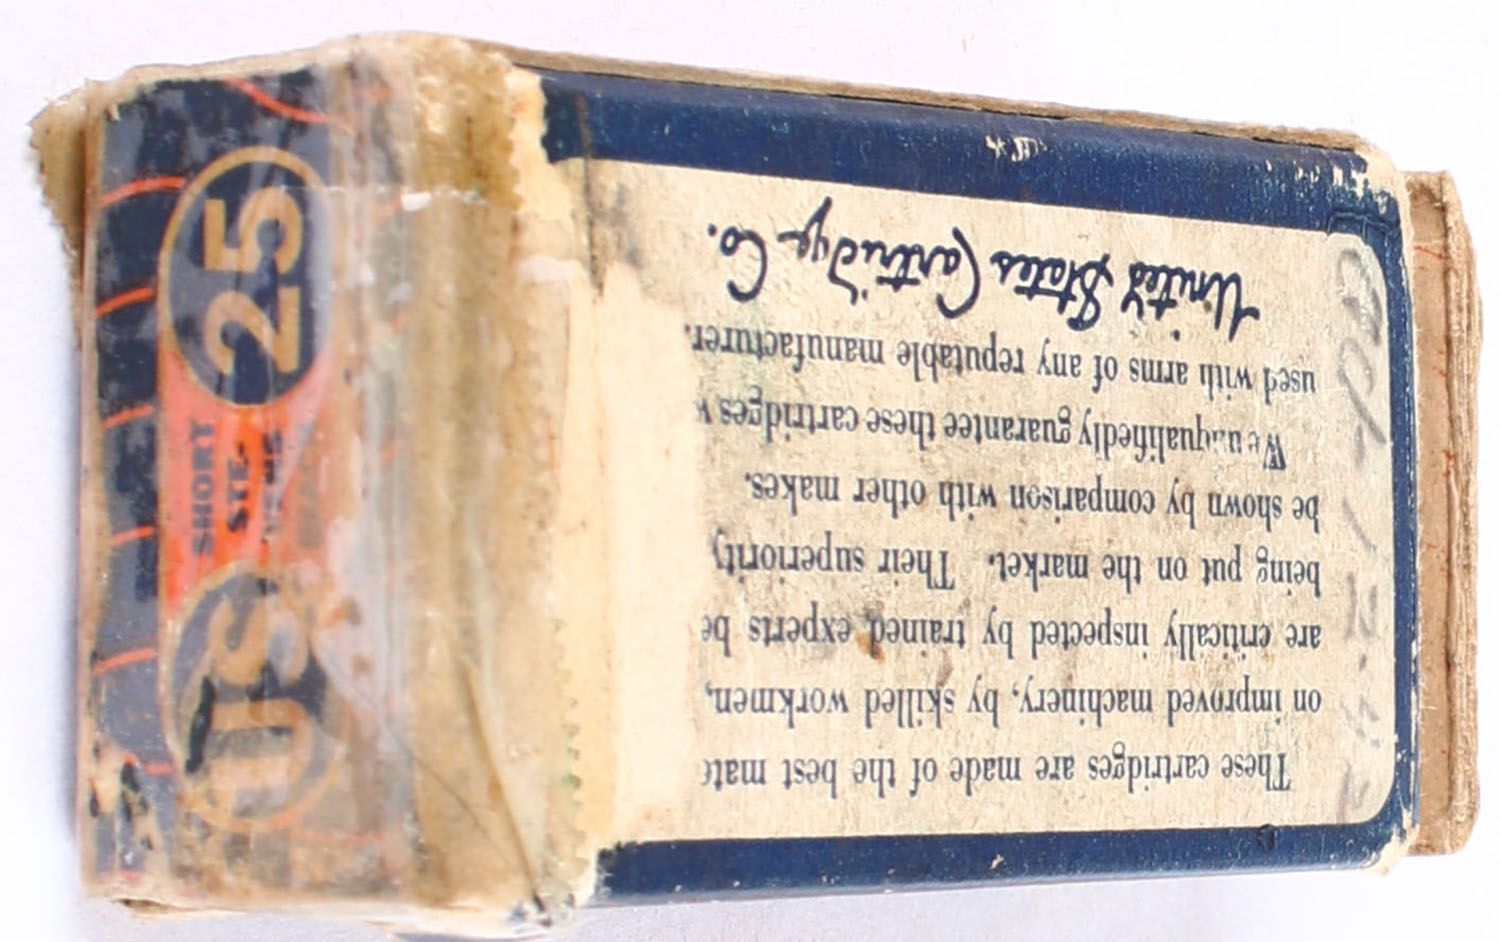 These cartridges are made of the best mate
on improved machinery, by skilled workmen,
are critically inspected by trained experts be
being put on the market. Their superiority
be shown by comparison with other makes.
We unqualifiedly guarantee these cartridges w
used with arms of any reputable manufacturer.
United States Cartridge Co.
US
SHORT
STE-
25